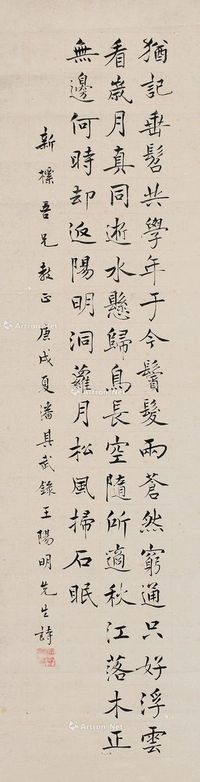 猶記垂髫共學年于今鬢髮兩蒼然窮通只好浮雲
看歲月真同逝水懸歸鳥長空隨所適秋江落木正
無邊何時却返陽明洞蘿月松風掃石眠
新標吾兄教正庚戌夏潘其武錄王陽明先生詩